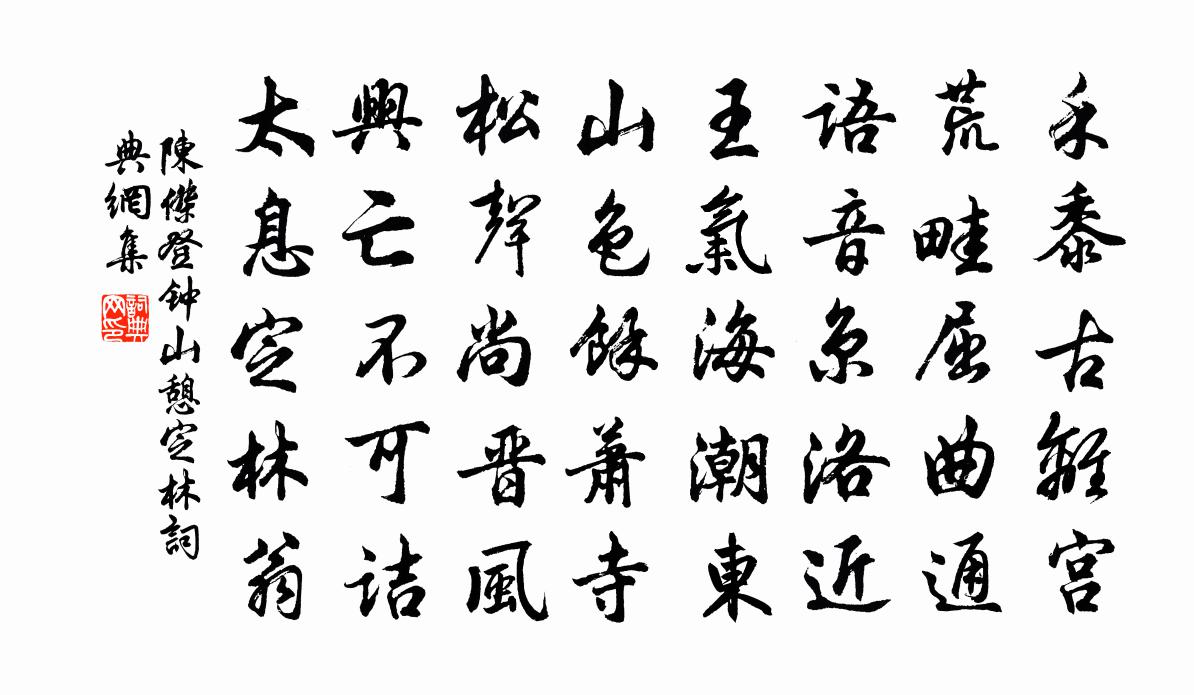 禾黍古離宮
荒畦屈曲通
語音京洛近
王氣海潮東
山色餘蕭寺
松聲尚晋風
興亡不可詰
太息定林翁
陳傑登钟山憩定林詞
典網集
詞典
网印